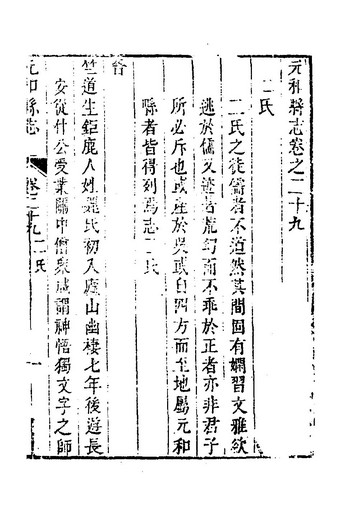 元和縣志卷之二十九
二氏
二氏之徒儒者不道然其間固有嫻習文雅欲
逃於儒又跡若荒幻而不乖於正者亦非君子
所必斥也或產於吳或自四方而至地屬元和
縣者皆得列焉志二氏
晉
竺道生鉅鹿人姓魏氏初入廬山幽棲七年後遊長
安從什公受業關中僧眾咸謂神悟獨文字之師
元和縣志
卷二十九 二氏
一